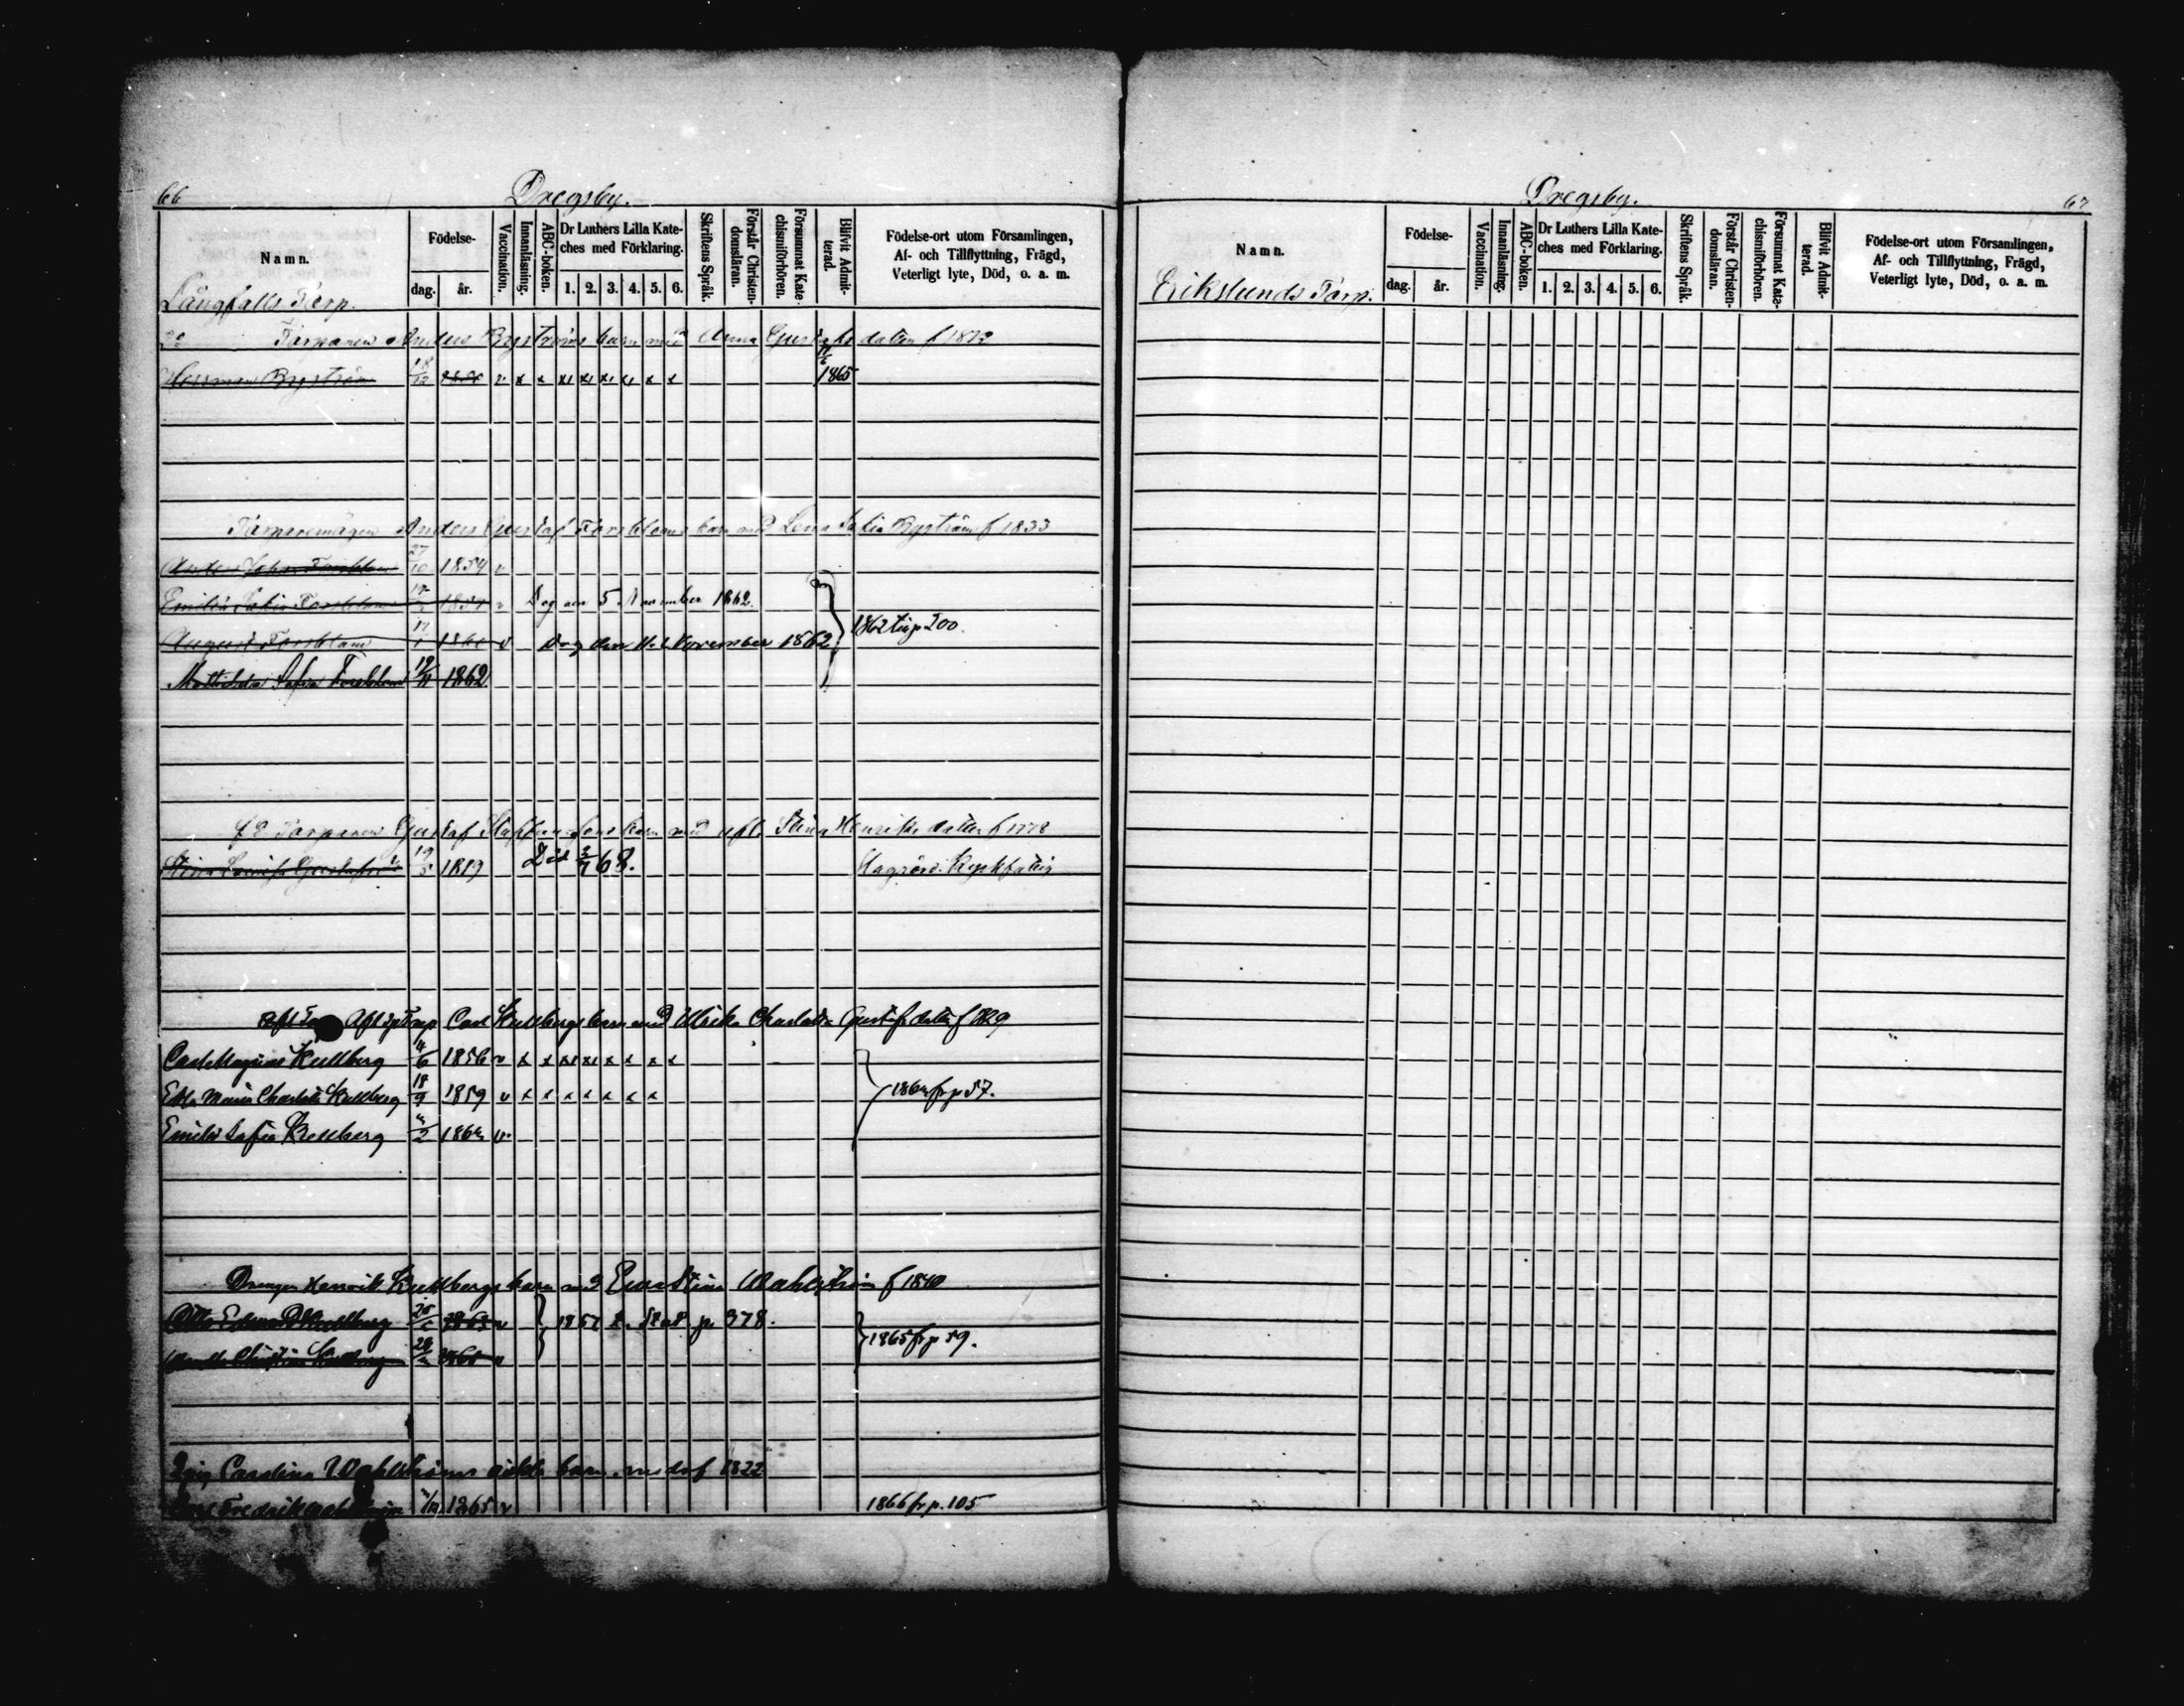 66
Dregsby.
Namn.
Födelse-
dag.
år.
Vaccination.
Innanläsning.
ABC-boken.
Dr Luthers Lilla Kate-
ches med Förklaring.
1. 2. 3. 4. 5. 6.
Skriftens Språk.
Förstår Christen-
domsläran.
Försummat Kate-
chismiförhören.
Blifvit Admit-
terad.
Födelse-ort utom Församlingen,
Af- och Tillflyttning, Frägd,
Veterligt lyte, Död, o. a. m.
Långfalls Torp.
Torparen Anders Byströms barn med Anna Gustafs dotter f
Herrman Byström 18/12 v x x x x x x x x 1865
Torparemågen Anders Gustaf Forsbloms barn med Lena Sofia Byström f 1833
Anders Johan Forsblom 27/10 1854 v
Emilia Sofia Forsblom Dog den 5 November 1862
August Forsblom v Dog den 11 November 1862
1862 till p 200.
Mathilda Sofia Forsblom 1862
Torparen Gustaf Staffanssons barn med Stina Henriks dotter f 1778
Stina Lovisa Gustafsd:r 19/5 1819 Död 68.
Torp Carl Kullbergs barn med Ulrika Charlotta Gustafsdotter f 1829
Carl Magnus Kullberg 1856 v x x x x x x x x
Edla Maria Charlotta Kullberg 18/9 1859 v x x x x x x x
fr p 57.
Emilia Sofia Kullberg v
Drengen Henrik Kullbergs barn med Eva Stina Wahlström f 1840
Otto Edvard Kullberg p 378.
1865 fr p 59.
Kullberg
Caroline Wahlströms oäkta barn, modren f 1822
Fredrik Wahlström 1865 v 1866 fr p. 105
Dregsby.
67
Namn.
Födelse-
dag.
år.
Vaccination.
Innanläsning.
ABC-boken.
Dr Luthers Lilla Kate-
ches med Förklaring.
1. 2. 3. 4. 5. 6.
Skriftens Språk.
Förstår Christen-
domsläran.
Försummat Kate-
chismiförhören.
Blifvit Admit-
terad.
Födelse-ort utom Församlingen,
Af- och Tillflyttning, Frägd,
Veterligt lyte, Död, o. a. m.
Erikslunds Torp.